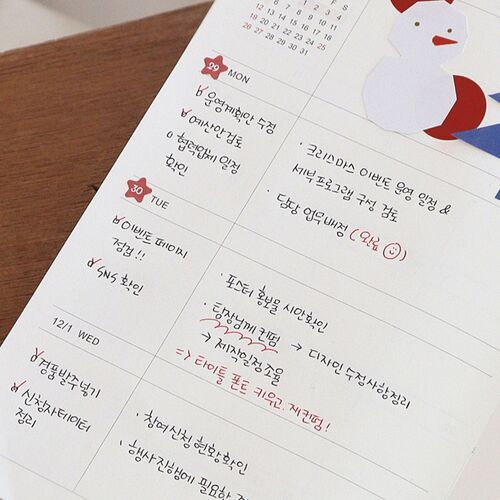 F S
1 2 3 4
5 6 7 8 9 10 11
12 13 14 15 16 17 18
19 20 21 22 23 24 25
26 27 28 29 30 31
29 MON
운영계획안 수정
예산안 검토
협력업체 일정
확인
· 크리스마스 이벤트 운영 일정 &
세부프로그램 구성 검토
· 담당 업무배정 (완료)
30 TUE
이벤트 페이지
점검!!
SNS 확인
· 포스터 홍보물 시안확인
· 팀장님께 컨펌 → 디자인 수정사항정리
→ 제작일정 조율
=> 타이틀 폰트 키우고 재컨펌!
12/1 WED
경품발주넣기
신청자데이터
정리
· 참여신청 현황확인
· 행사진행에 필요한